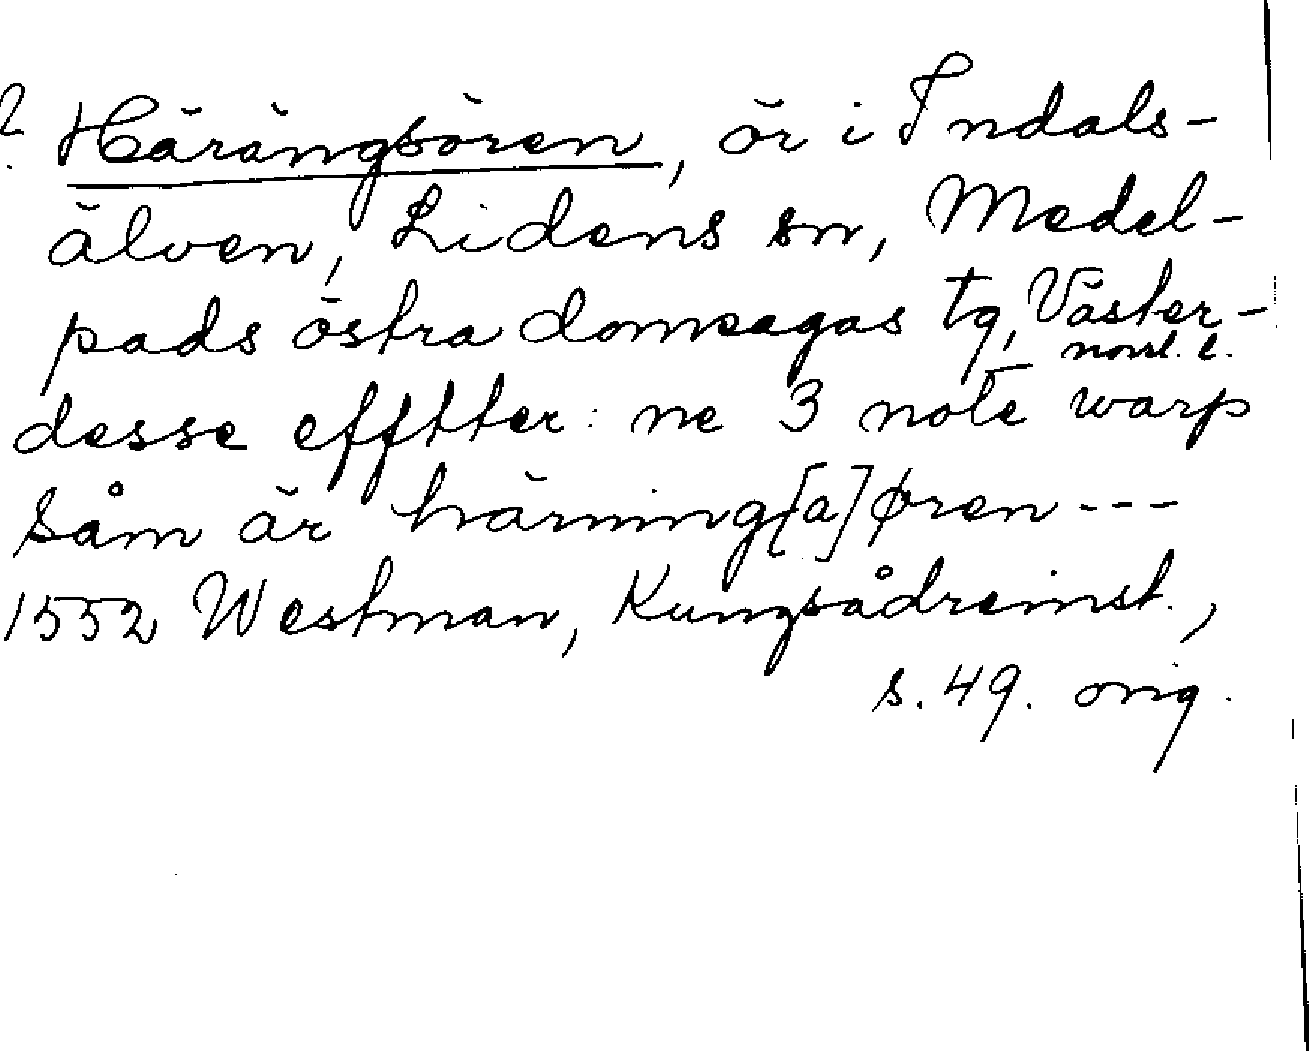 ? Härängsören, ör i Indals-
älven, Lidens sn, Medel-
pads östra domsagas tg, Väster-
norrl. l.
desse efftter: ne 3 note warp
såm är hwärning[a]øren ---
1552 Westman, Kungsådreinst.,
s. 49. orig.